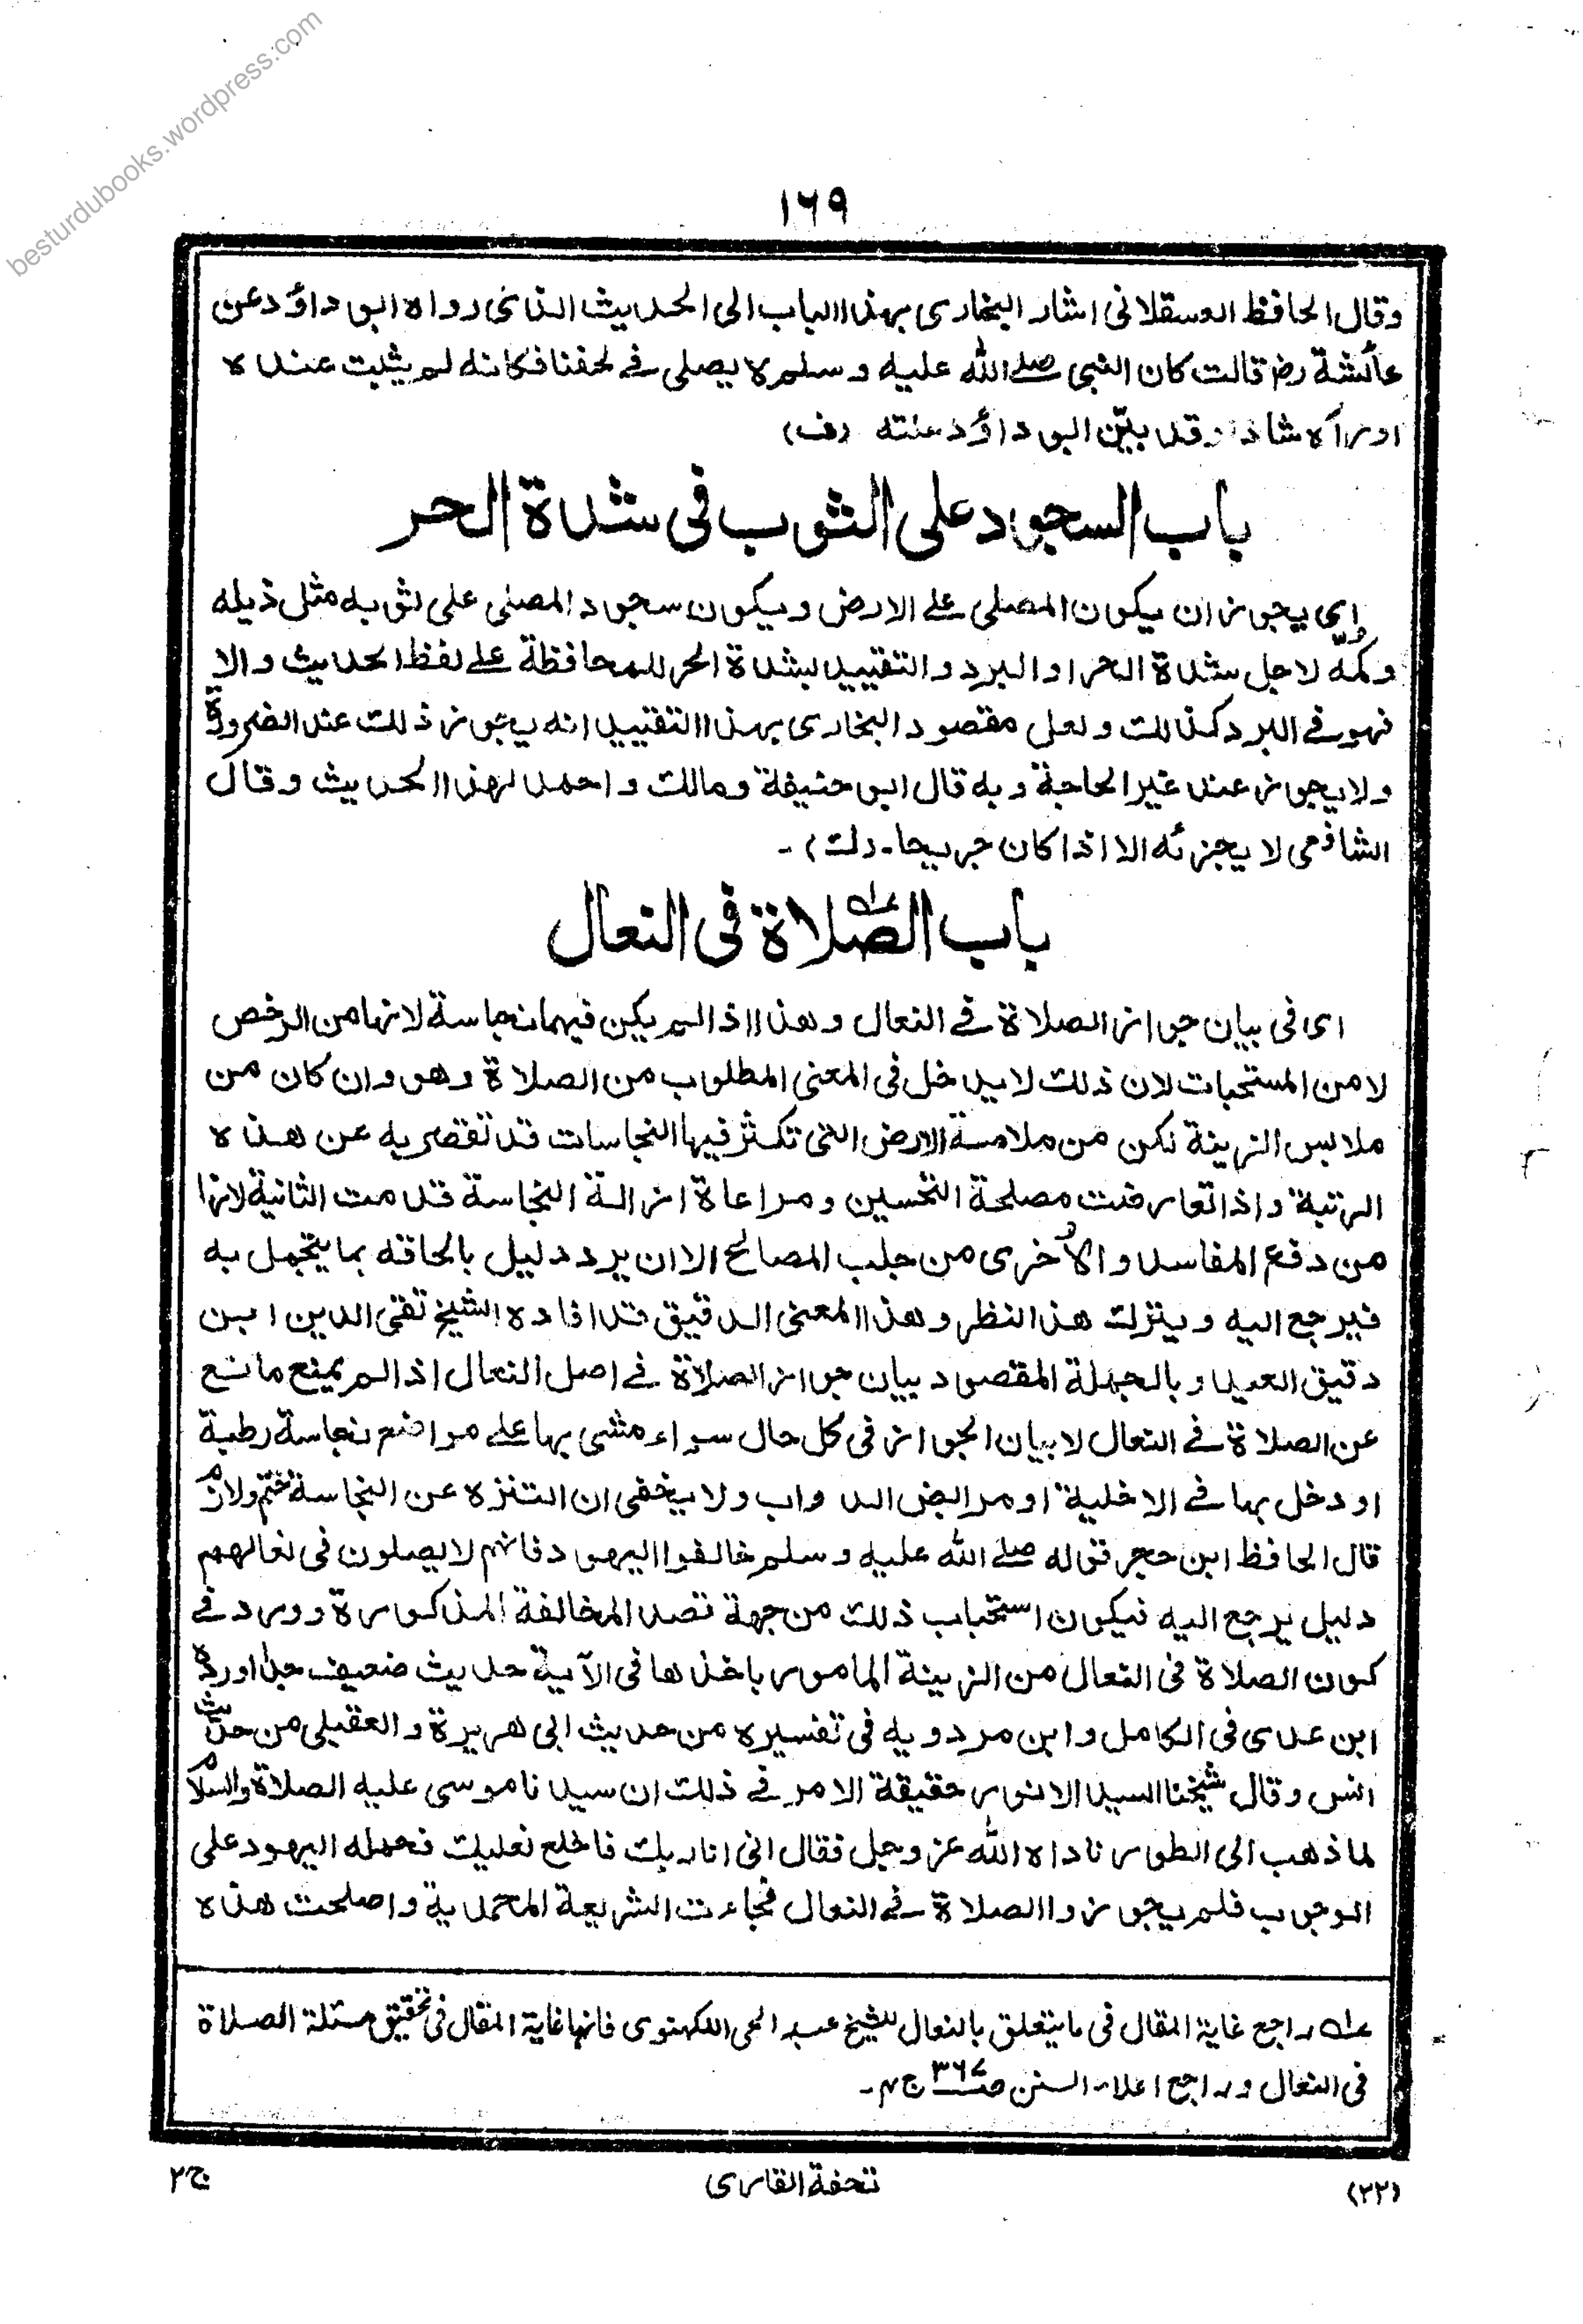 besturdubooks.wordpress.com
١٦٩
وقال الحافظ العسقلانى اشار البخارى بهذا الباب الى الحديث الذى رواه ابو داؤد عن
عائشة رض قالت كان النبى صلے الله عليه وسلم لا يصلى فے لحفنا فكانه لم يثبت عنده
او رآه شاذا وقد بيّن ابو داؤد علته (ف)
باب السجود على الثوب فى شدة الحر
اى يجوز ان يكون المصلى علے الارض ويكون سجود المصلى على ثوبه مثل ذيله
وكمّه لاجل شدة الحر او البرد والتقييد بشدة الحر للمحافظة علے لفظ الحديث والا
فهو فے البرد كذلك ولعل مقصود البخارى بهذا التقييد انه يجوز ذلك عند الضرورة
ولا يجوز عند غير الحاجة وبه قال ابو حنيفة ومالك واحمد لهذا الحديث وقال
الشافعى لا يجزئه الا اذا كان جريحا۔ (ك) ۔
باب الصّلاة فى النعال
اى فى بيان جواز الصلاة فے النعال وهذا اذا لم يكن فيهما نجاسة لانها من الرخص
لا من المستحبات لان ذلك لا يدخل فى المعنى المطلوب من الصلاة وهو وان كان من
ملابس الزينة لكن من ملامسة الارض التى تكثر فيها النجاسات قد تقصر به عن هذه
الرتبة واذا تعارضت مصلحة التحسين ومراعاة ازالة النجاسة قدمت الثانية لانها
من دفع المفاسد والأخرى من جلب المصالح الا ان يرد دليل بالحاقه بما يتجمل به
فيرجع اليه ويترك هذا النظر وهذا المعنى الدقيق قد افاده الشيخ تقى الدين ابن
دقيق العيد وبالجملة المقصود بيان جواز الصلاة فے اصل النعال اذا لم يمنع مانع
عن الصلاة فے النعال لا بيان الجواز فى كل حال سواء مشى بها علے مواضع نجاسة رطبة
او دخل بها فے الاخلية او مرابض الدواب ولا يخفى ان التنزه عن النجاسة حتم ولازم
قال الحافظ ابن حجر قوله صلے الله عليه وسلم خالفوا اليهود فانهم لا يصلون فى نعالهم
دليل يرجع اليه فيكون استحباب ذلك من جهة قصد المخالفة المذكورة وورد فے
كون الصلاة فى النعال من الزينة المامور باخذها فى الآية حديث ضعيف جدا اورده
ابن عدى فى الكامل وابن مردويه فى تفسيره من حديث ابى هريرة والعقيلى من حديث
انس وقال شيخنا السيد الانور حقيقة الامر فے ذلك ان سيدنا موسى عليه الصلاة والسلام
لما ذهب الى الطور ناداه الله عز وجل فقال انى انا ربك فاخلع نعليك فحمله اليهود على
الوجوب فلم يجوزوا الصلاة فے النعال فجاءت الشريعة المحمدية واصلحت هذه
عله راجع غاية المقال فى ما يتعلق بالنعال للشيخ عبد الحى اللكهنوى فانها غاية المقال فى تحقيق مسئلة الصلاة
فى النعال وراجع اعلاء السنن صـ ج۴۔
(٢٢)
تحفة القارى
ج٢